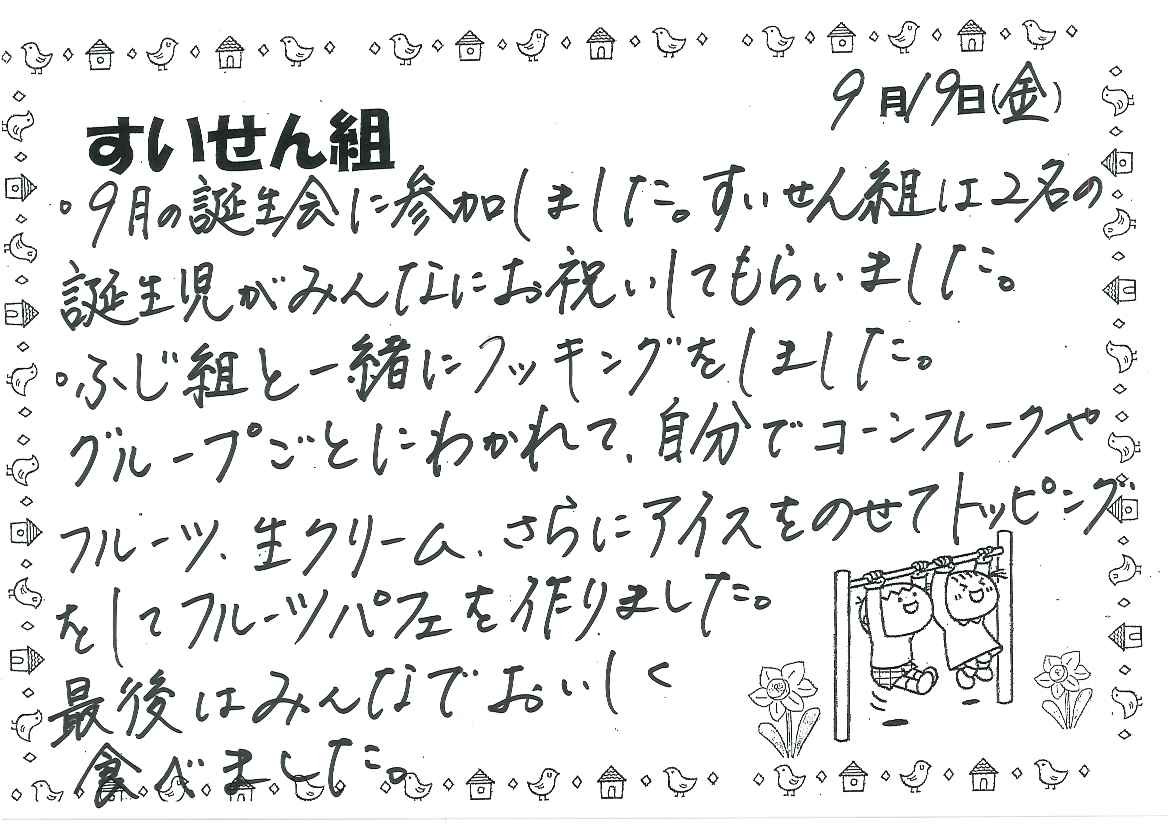 9月19日(金)
すいせん組
・9月の誕生会に参加しました。すいせん組は2名の
誕生児がみんなにお祝いしてもらいました。
・ふじ組と一緒にクッキングをしました。
グループごとにわかれて、自分でコーンフレークや
フルーツ、生クリーム、さらにアイスをのせてトッピング
をしてフルーツパフェを作りました。
最後はみんなでおいしく
食べました。